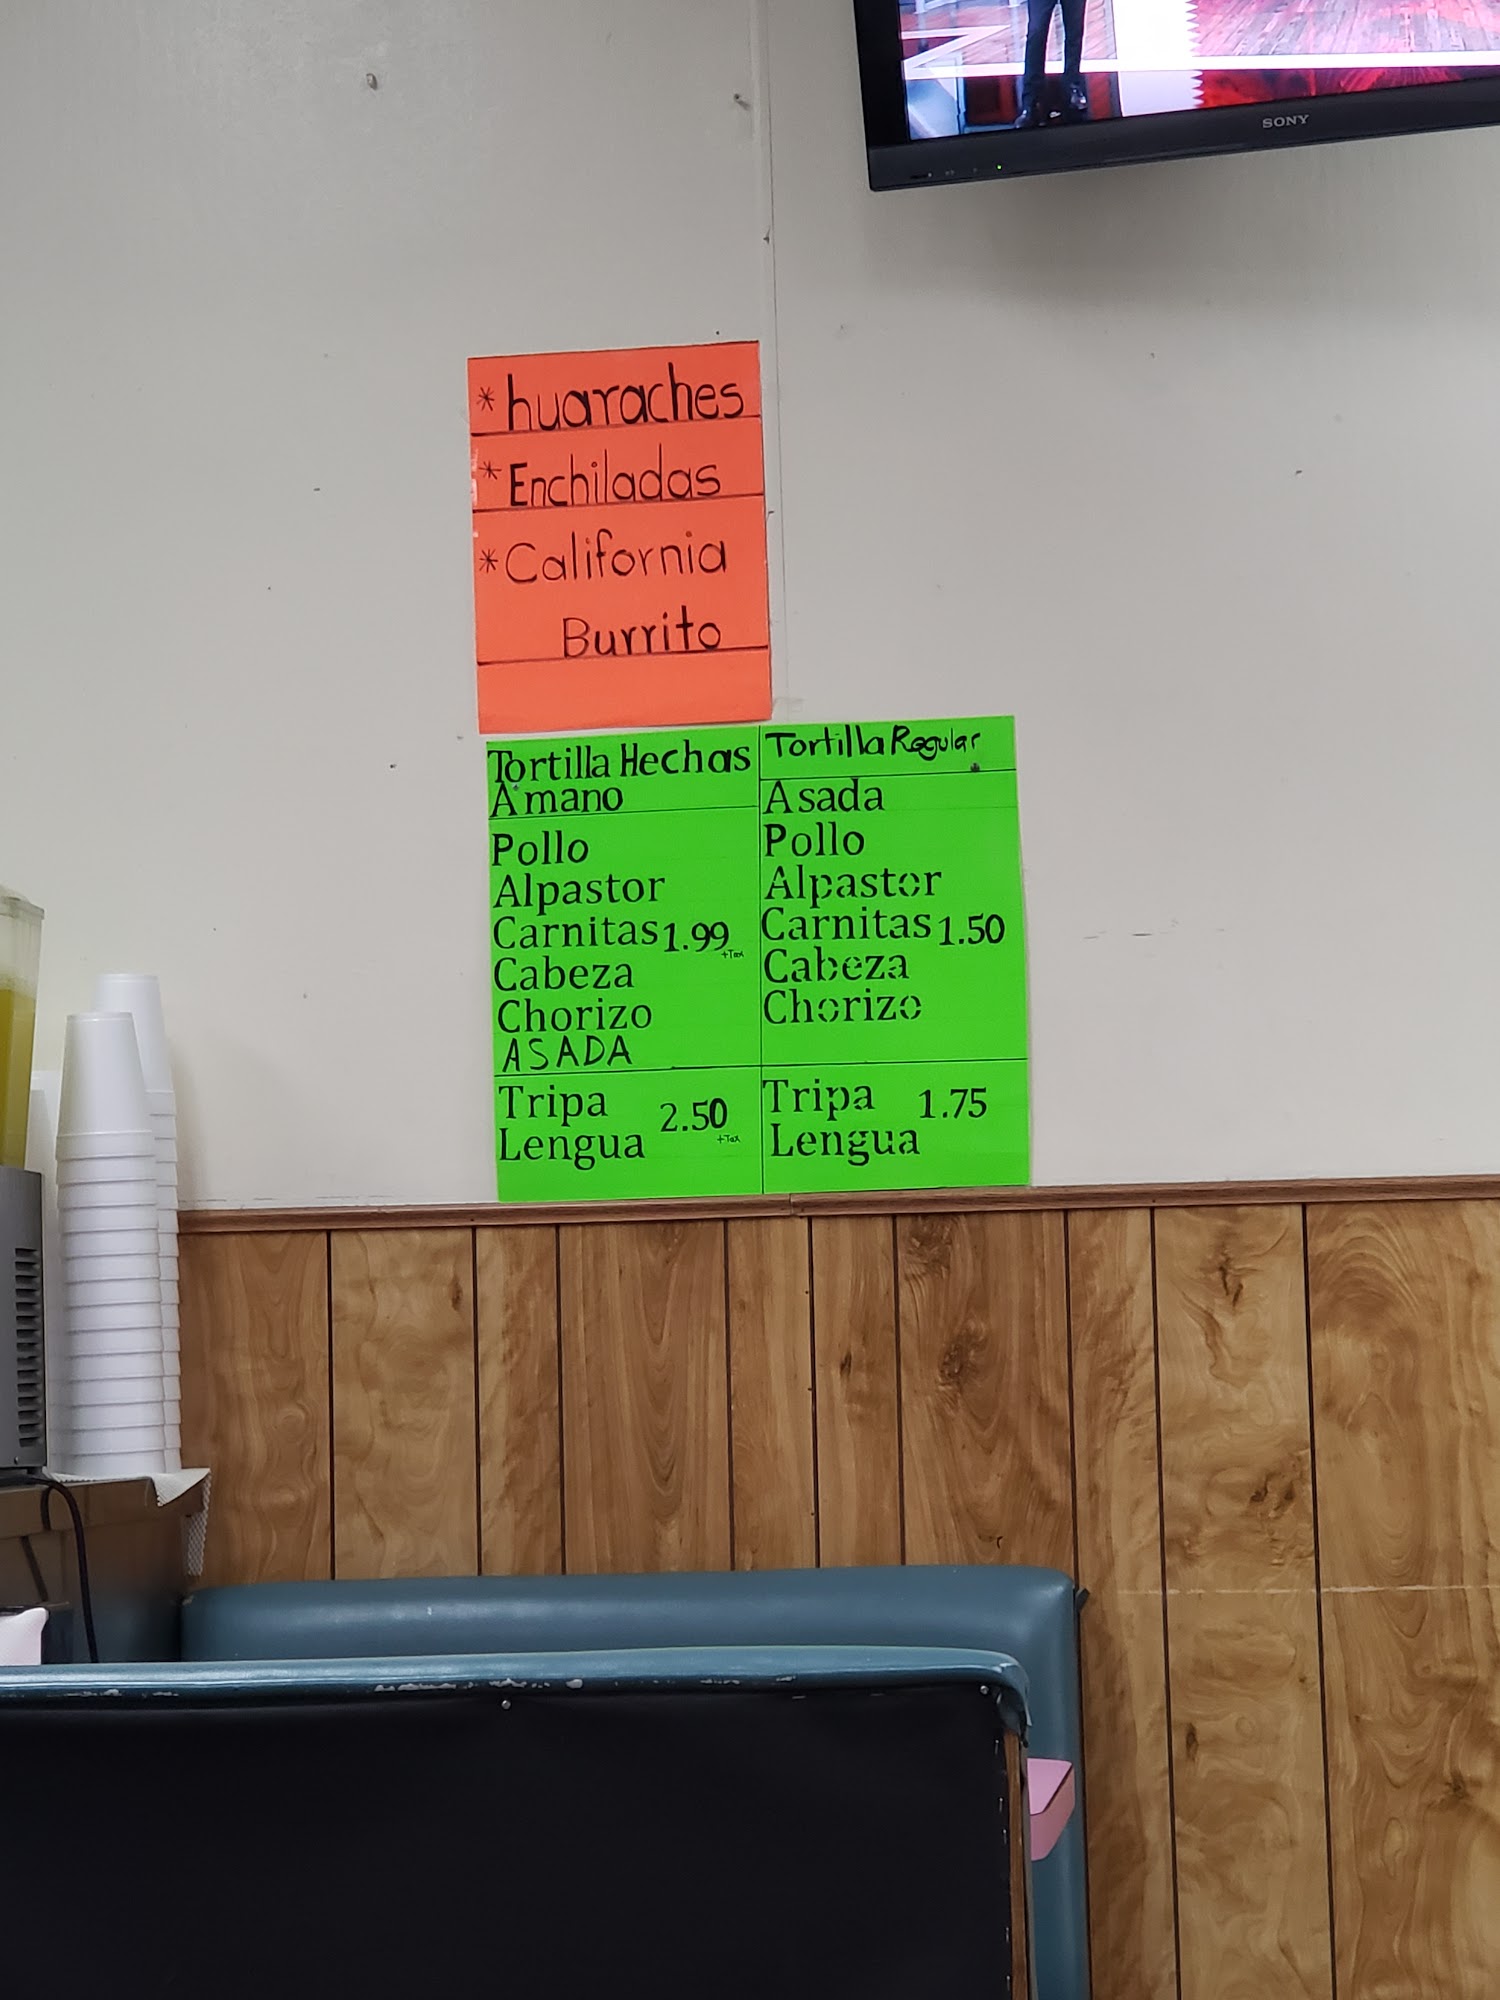 SONY
* huaraches
* Enchiladas
* California
Burrito
Tortilla Hechas
Amano
Pollo
Alpastor
Carnitas 1.99
+Tax
Cabeza
Chorizo
ASADA
Tripa 2.50
+Tax
Lengua
Tortilla Regular
Asada
Pollo
Alpastor
Carnitas 1.50
Cabeza
Chorizo
Tripa 1.75
Lengua